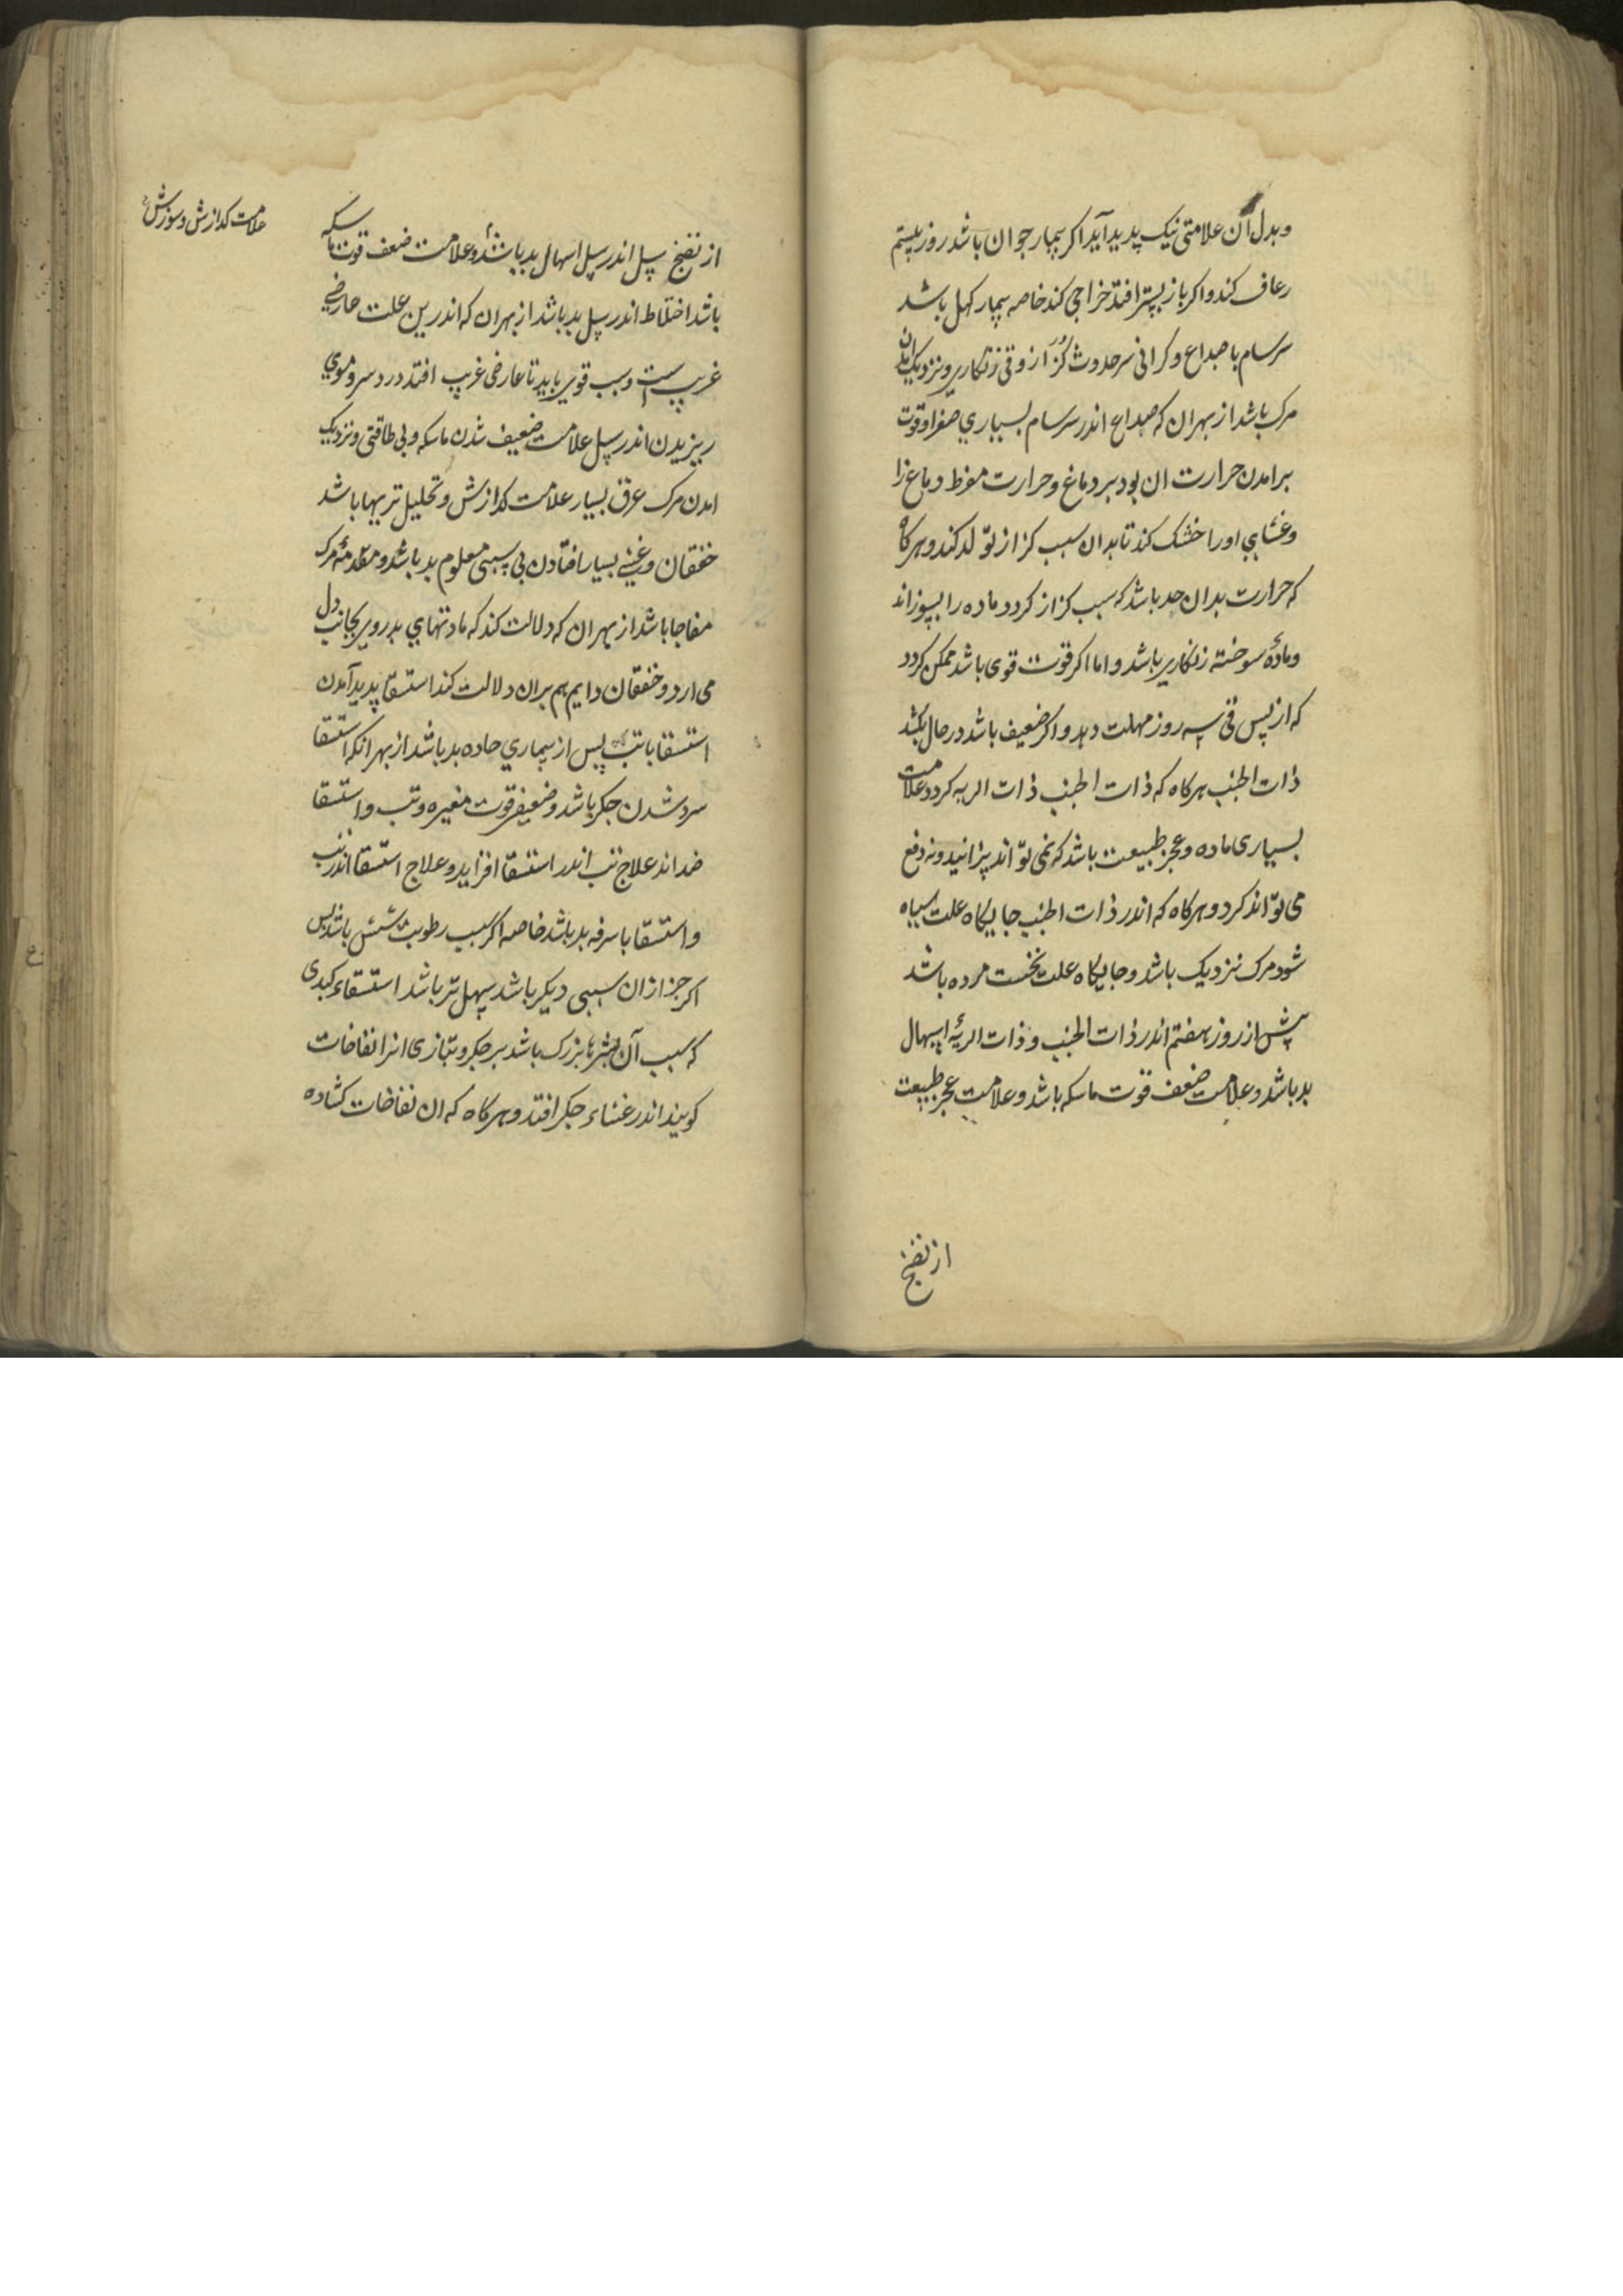 وبدل آن علامتی نیک پدید آید اکر بیمار جوان باشد روز بیستم
رعاف کند واکر باز پستر افتد خراجی کند خاصه بیمار کهل باشد
سرسام با صداع وکرانی سر حدوث کزاز وقی زنکاری ونزدیک امدن
مرک باشد از بهر ان که صداع اندر سرسام بسیاری صفرا وقوت
برامدن حرارت ان بود بر دماغ وحرارت مفرط دماغ را
وغشای اورا خشک کند تا بدان سبب کزاز تولد کند وهرکاه
که حرارت بدان حد باشد که سبب کزاز کردد ماده را بسوزاند
ومادهٔ سوخته زنکاری باشد واما اکر قوت قوی باشد ممکن کردد
که از پس قی سه روز مهلت دهد واکر ضعیف باشد در حال بکشد
ذات الجنب هرکاه که ذات الجنب ذات الریه کردد علامت
بسیاری ماده وعجز طبیعت باشد که نمی تواند پزانید ونه دفع
می تواند کرد وهرکاه که اندر ذات الجنب جایکاه علت سیاه
شود مرک نزدیک باشد وجایکاه علت نخست مرده باشد
پیش از روز هفتم اندر ذات الجنب وذات الریهٔ اسهال
بد باشد وعلامت ضعف قوت ماسکه باشد وعلامت عجز طبیعت
از نضج
علامت کدازش وسوزش
از نضج سل اندر سل اسهال بد باشد وعلامت ضعف قوت ماسکه
باشد اختلاط اندر سل بد باشد از بهر ان که اندرین علت عارضی
غریب است وسبب قوی باید تا عارضی غریب افتد درد سر وموی
ریزیدن اندر سل علامت ضعیف شدن ماسکه وبی طاقتی ونزدیک
امدن مرک عرق بسیار علامت کدازش وتحلیل تریها باشد
خفقان وغشی بسیار افتادن بی سببی معلوم بد باشد ومقدمهٔ مرک
مفاجا باشد از بهر ان که دلالت کند که مادتهای بد روی بجانب دل
می ارد وخفقان دایم هم بران دلالت کند استسقا پدید آمدن
استسقا با تب پس از بیماری حاده بد باشد از بهر انکه استسقا
سرد شدن جکر باشد وضعیفی قوت مغیره وتب واستسقا
ضد اند علاج تب اندر استسقا افزاید وعلاج استسقا اندر تب
واستسقا با سرفه بد باشد خاصه اکر سبب رطوبت شش باشد پس
اکر جز از ان سببی دیکر باشد سهل تر باشد استسقاء کبدی
که سبب آن بثرها بزرک باشد بر جکر وبتازی انرا نفاخات
کویند اندر غشاء جکر افتد وهرکاه که ان نفاخات کشاده